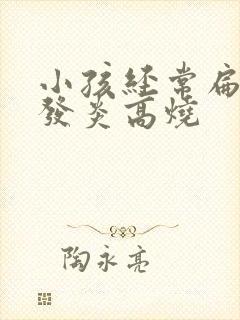 小孩經常扁
發炎高燒
陶永亮